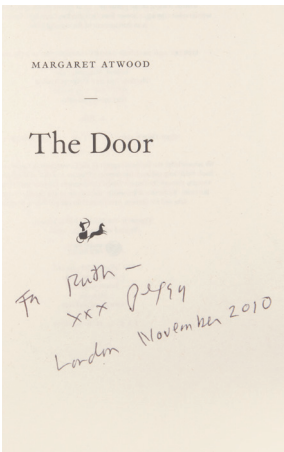 MARGARET ATWOOD
—
The Door
For Ruth —
xxx Peggy
London November 2010